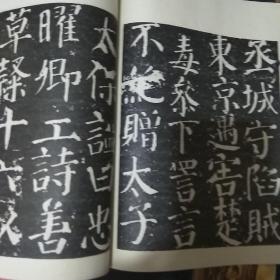 丞城守陷賊
東京遇害楚
毒參下詈言
不絕贈太子
太保諡曰忠
曜卿工詩善
草隸十六以